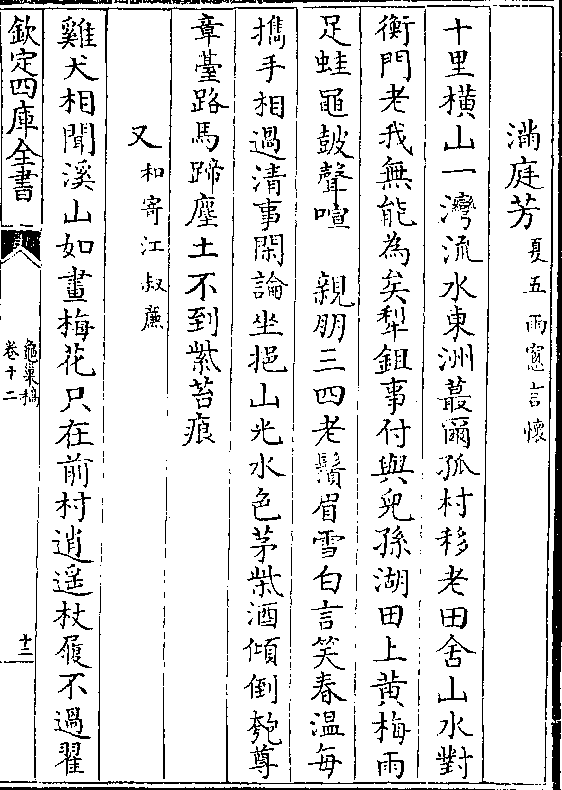 滿庭芳夏五雨窻言懷
十里橫山一灣流水東洲蕞爾孤村移老田舍山水對
衡門老我無能為矣犁鉏事付與兒孫湖田上黄梅雨
足蛙黽鼓聲喧　親朋三四老鬚眉雪白言笑春温每
攜手相過清事閑論坐挹山光水色茅柴酒傾倒匏尊
章臺路馬蹄塵土不到紫苔痕
又和寄江叔㢘
雞犬相聞溪山如畫梅花只在前村逍遥杖屨不過翟
欽定四庫全書
龜巢稿
卷十二
十三